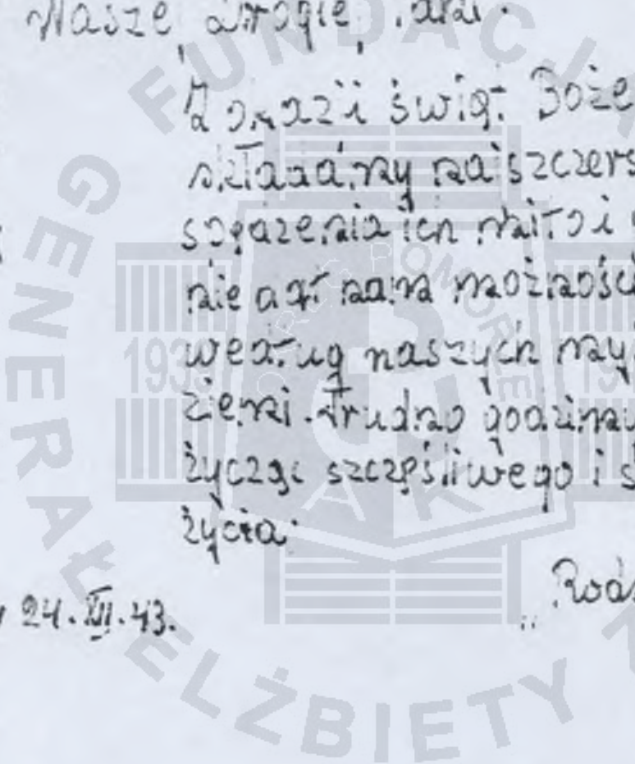 Nasze Drogie
Z okazji świąt Boże
składamy najszczers
spędzenia ich miło i
nie dał nam możności
według naszych my
ziemi. Trudno godzimy
życząc szczęśliwego i s
życia.
24.XII.43.
"Rodz
FUNDACJA
GENERAŁ ELŻBIETY
POMORZE
AK